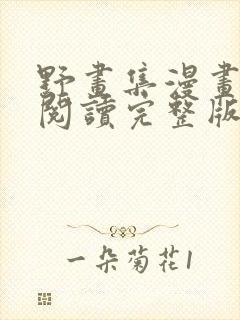 野畫集漫畫
閱讀完整版
一朵菊花1